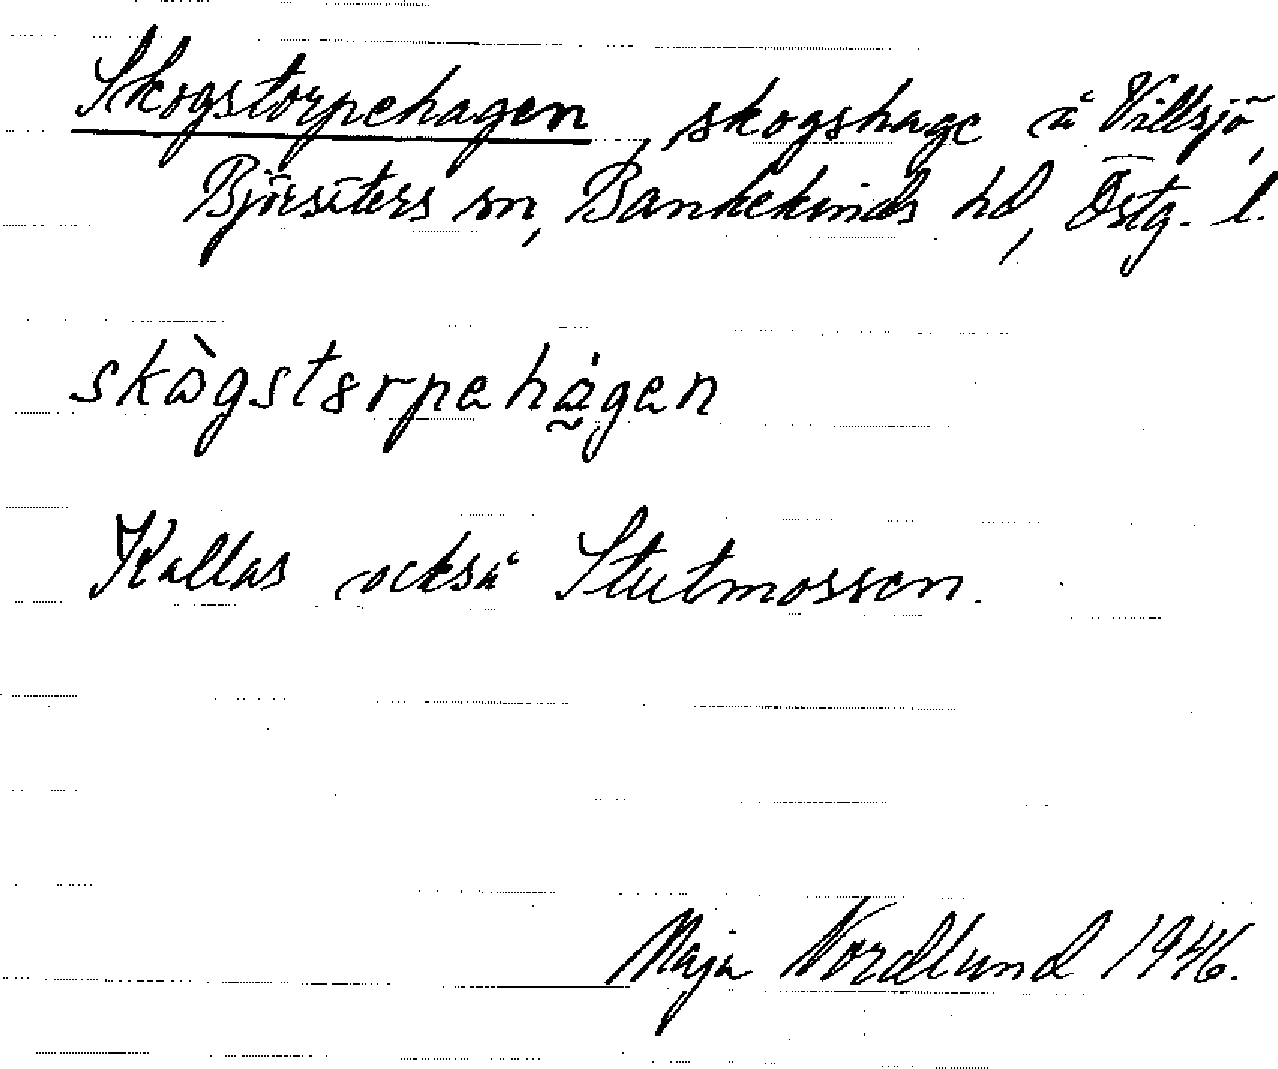 Skogstorpehagen, skogshage å Villsjö,
Björsäters sn, Bankekinds hd, Östg. l.
skògstɵrpehágen
Kallas också Stutmossen.
Maja Nordlund 1946.